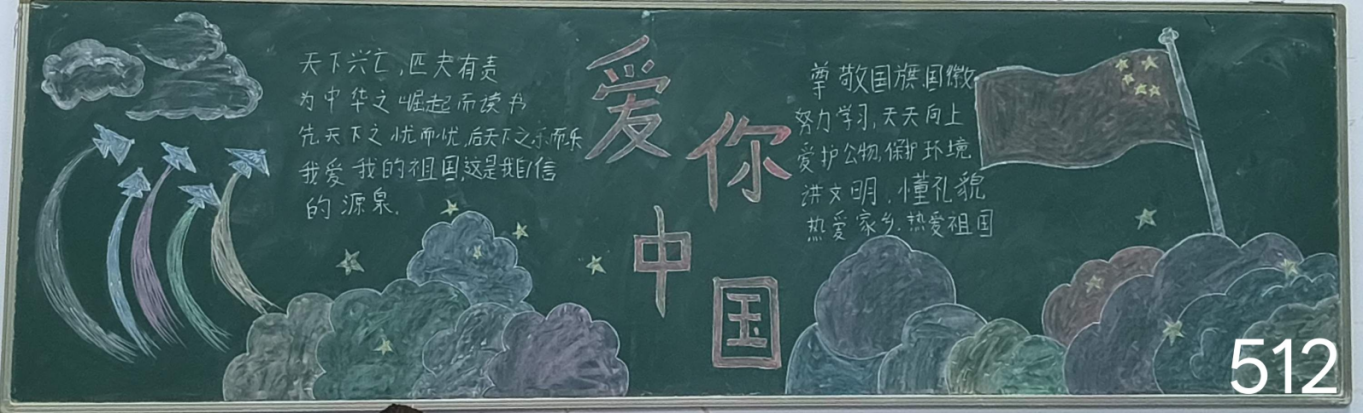 天下兴亡,匹夫有责
为中华之崛起而读书
先天下之忧而忧,后天下之乐而乐
我爱我的祖国,这是我自信
的源泉.
爱
你
中
国
尊敬国旗国徽
努力学习,天天向上
爱护公物,保护环境
讲文明,懂礼貌
热爱家乡.热爱祖国
512